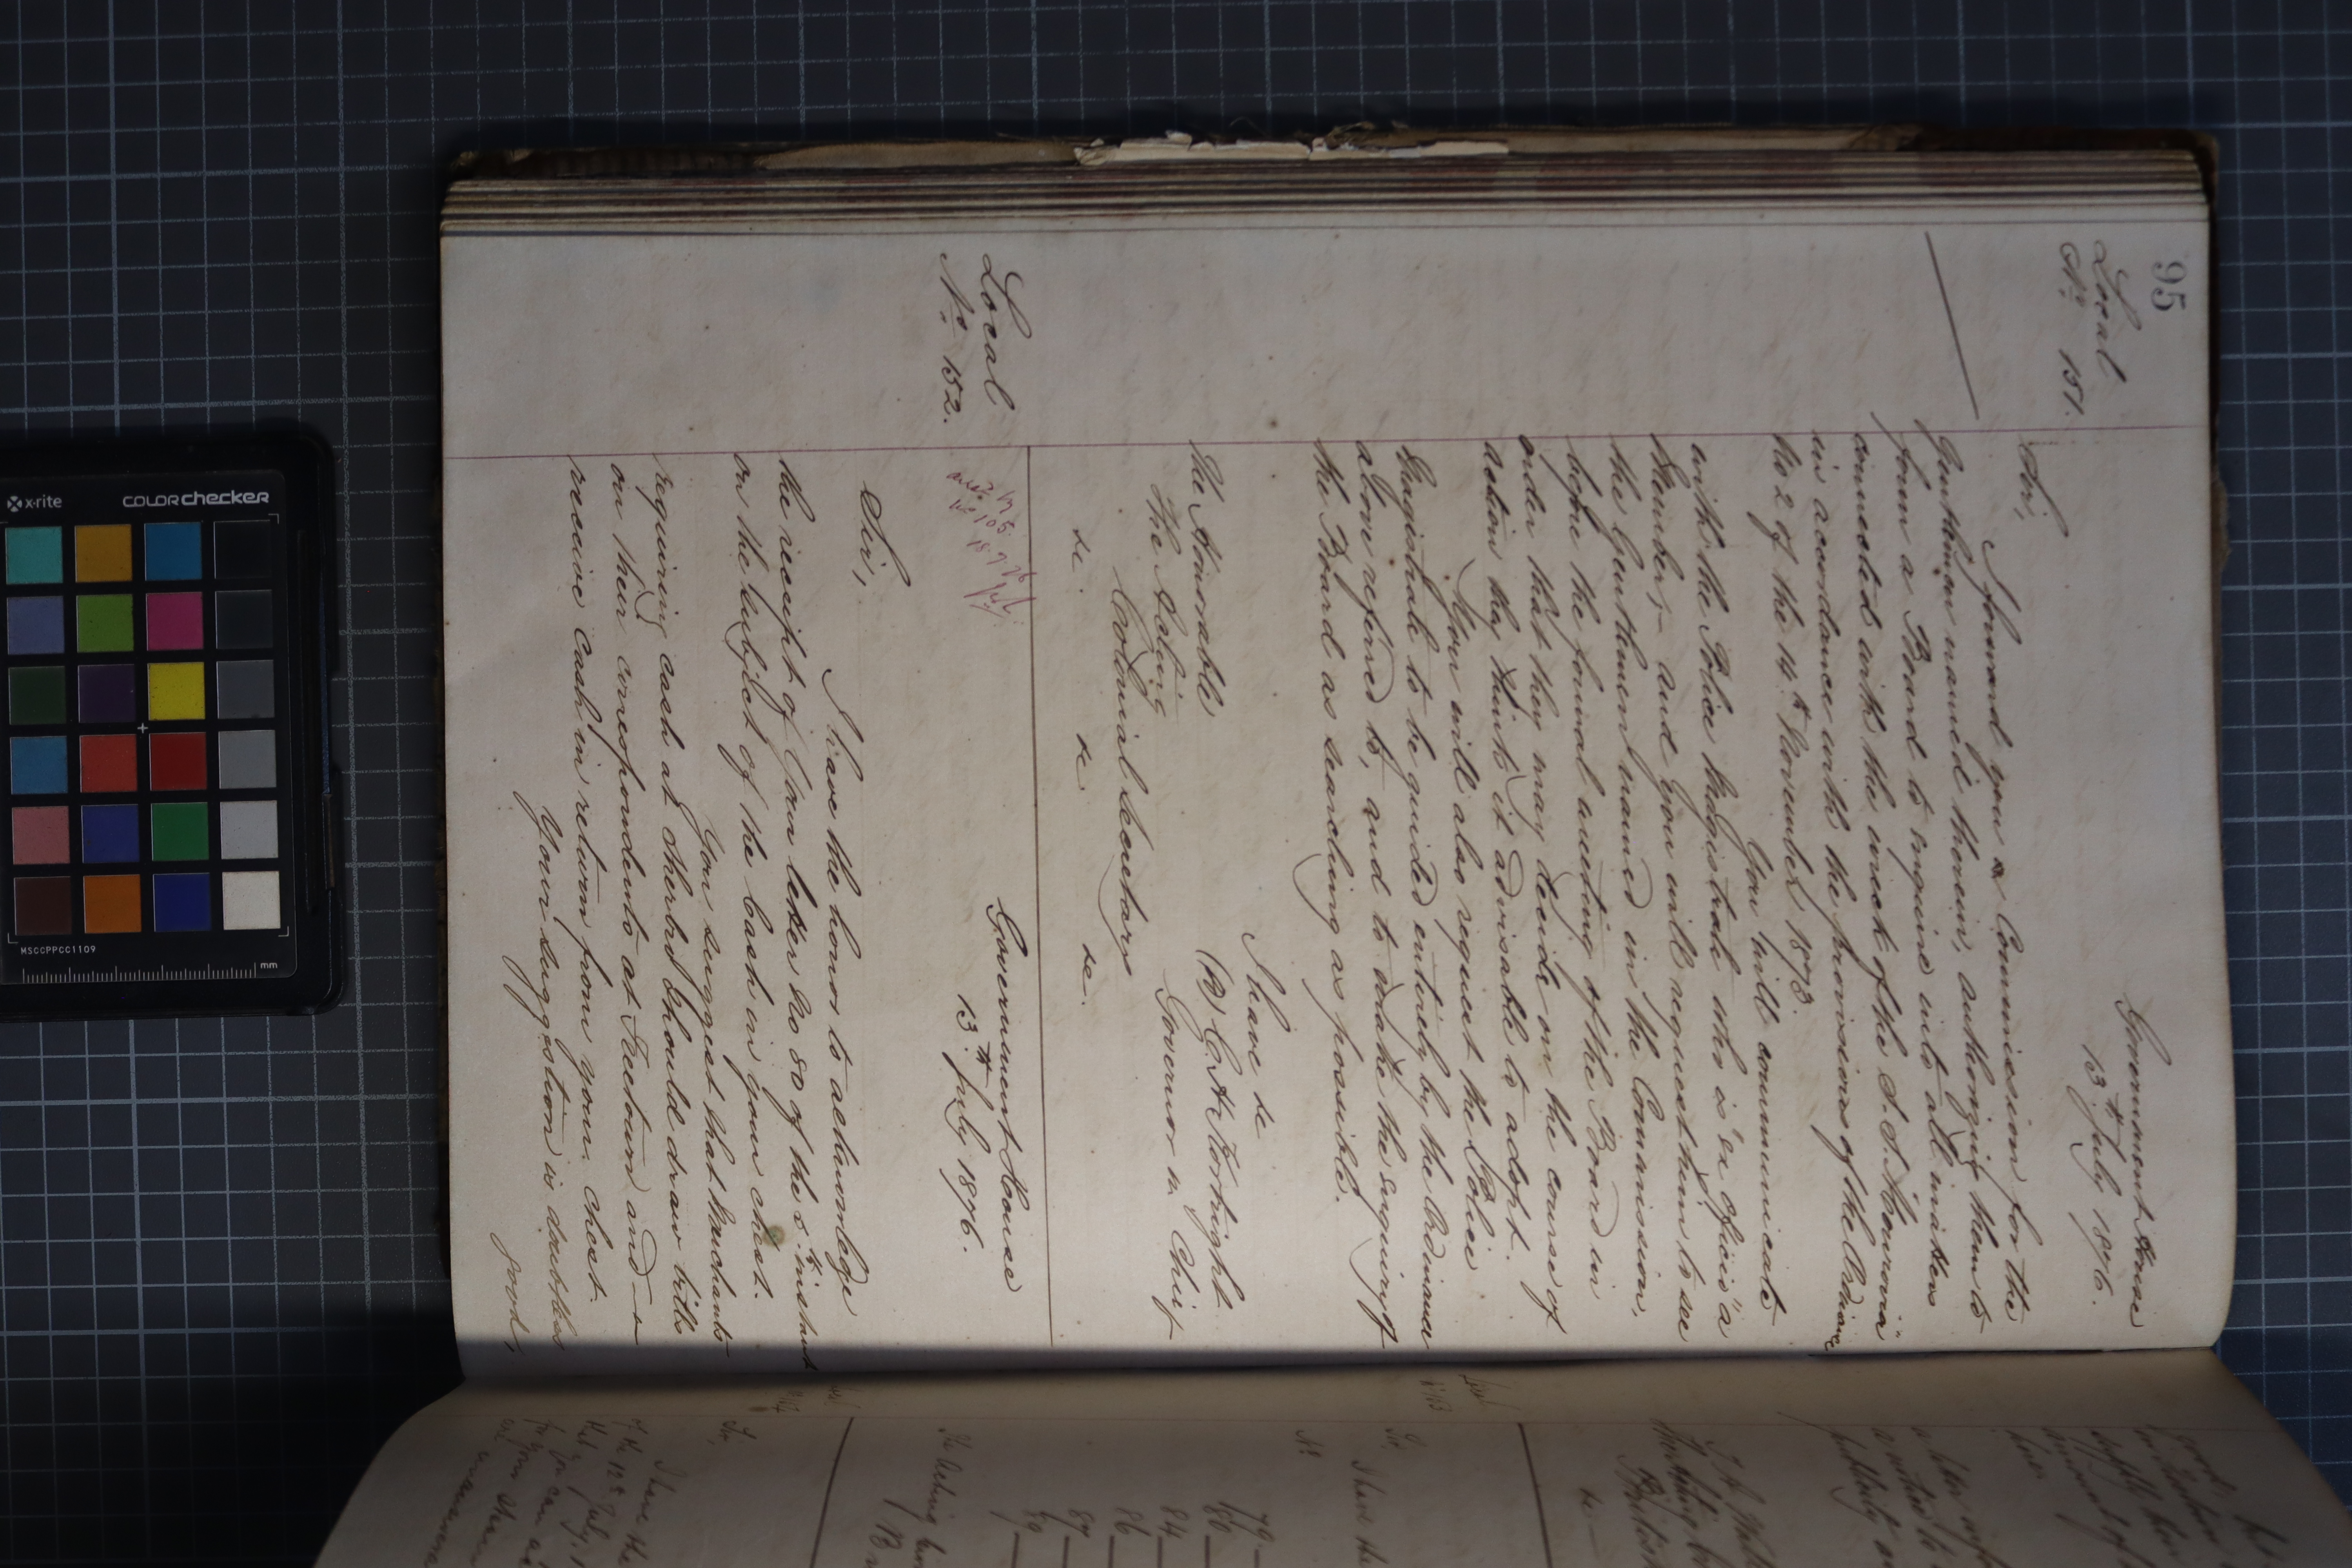 95
Local
No 151.
Government House
13th July 1876.
Sir,
I forward you a Commission for the
Gentlemen named therein, authorizing them to
form a Board to enquire into all matters
connected with the wreck of the S.S. "Monrovia"
in accordance with the provisions of the Ordinance
No 2 of the 14th November 1873.
You will communicate
with the Police Magistrate who is "ex officio" a
Member, and you will request him to see
the Gentlemen named in the Commission,
before the formal meeting of the Board in
order that they may decide on the course of
action they think it advisable to adopt.
You will also request the Police
Magistrate to be guided entirely by the Ordinance
above referred to, and to make the enquiry of
the Board as searching as possible.
I have &c
(s) C. H. Kortright
Governor in Chief
The Honorable
The Acting
Colonial Secretary
&c. &c &c.
Local
No 152.
Government House
13th July 1876.
Sir,
I have the honor to acknowledge
the receipt of your letter No 80 of the instant
on the subject of the Cash in your chest.
You suggest that Merchants
requiring cash at Sherbro should draw bills
on their correspondents at Freetown and
receive Cash in return from your chest.
Your suggestion is doubtless
good,
x-rite
colorchecker
MSCCPPCC1109
mm
79
80
84
86
87
89
I have the
Sir,
I have the